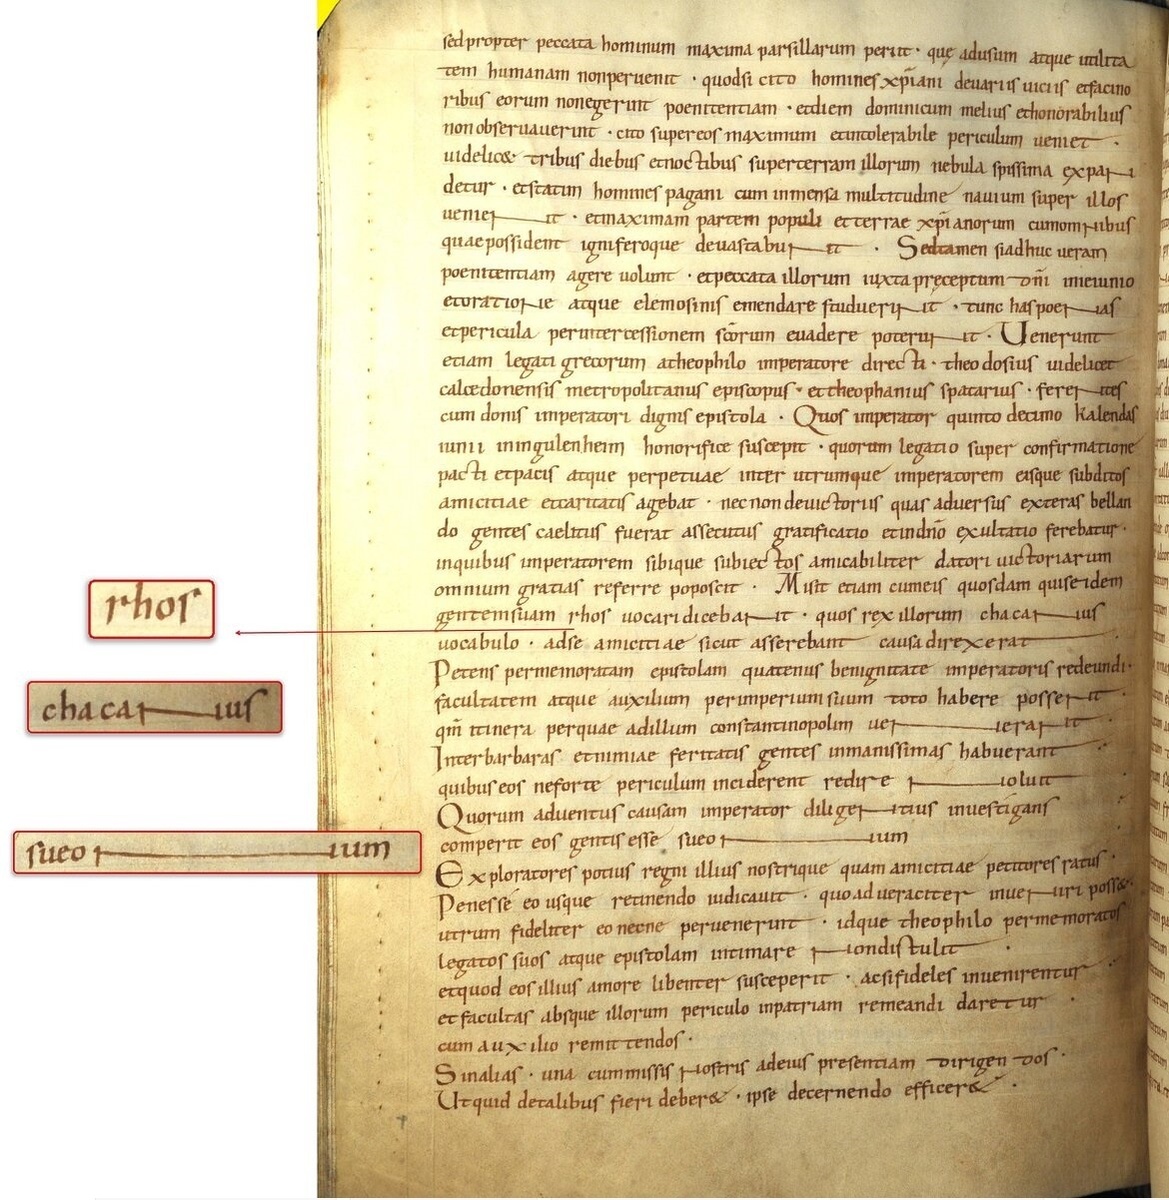 sed propter peccata hominum maxima parsillarum periit · que adusum atque utilita
tem humanam nonperuenit · quodsi cito homines xp̄iani deuariis uiciis etfacino
ribus eorum nonegerint poenitentiam · etdiem dominicum melius ethonorabilius
non obseruauerint · cito supereos maximum etintolerabile periculum ueniet ·
uidelic& tribus diebus etnoctibus superterram illorum nebula spissima expan
detur · etstatim homines pagani cum inmensa multitudine nauium super illos
uenient · etmaximam partem populi etterrae xp̄ianorum cumomnibus
quaepossident igniferoque deuastabunt · Sedtamen siadhuc ueram
poenitentiam agere uolunt · etpeccata illorum iuxta preceptum dn̄i inieiunio
etoratione atque elemosinis emendare studuerint · tunc haspoenas
etpericula perintercessionem sc̄orum euadere poterunt · Uenerunt
etiam legati grecorum atheophilo imperatore directi · theodosius uidelicet
calcedonensis metropolitanus episcopus · ettheophanius spatarius · ferentes
cum donis imperatori dignis epistola · Quos imperator quinto decimo kalendas
iunii iningulenheim honorifice suscepit · quorum legatio super confirmatione
pacti etpacis atque perpetuae inter utrumque imperatorem eisque subditos
amicitiae etcaritatis agebat · necnon deuictoriis quas aduersus exteras bellan
do gentes caelitus fuerat assecutus gratificatio etindn̄o exultatio ferebatur ·
inquibus imperatorem sibique subiectos amicabiliter datori uictoriarum
omnium gratias referre poposcit · Misit etiam cumeis quosdam quiseidem
gentemsuam rhos uocari dicebant · quos rex illorum chacanus
uocabulo · adse amicitiae sicut asserebant causa direxerat
Petens permemoratam epistolam quatenus benignitate imperatoris redeundi ·
facultatem atque auxilium perimperium suum toto habere possent ·
qm̄ itinera perquae adillum constantinopolim uenerant
Interbarbaras etnimiae feritatis gentes inmanissimas habuerant
quibus eos neforte periculum inciderent redire noluit
Quorum aduentus causam imperator diligentius inuestigans
comperit eos gentis esse sueonum
Exploratores potius regni illius nostrique quam amicitiae petitores ratus ·
Penes se eo usque retinendo iudicauit · quo ad ueraciter inueniri poss&
utrum fideliter eo necne peruenerint · idque theophilo permemoratos
legatos suos atque epistolam intimare nondistulit ·
etquod eos illius amore libenter susceperit · acsifideles inuenirentur
et facultas absque illorum periculo inpatriam remeandi daretur ·
cum auxilio remittendos ·
Sinalias · una cummissis nostris adeius presentiam dirigendos ·
Utquid detalibus fieri deber& · ipse decernendo efficer& ·
rhos
chacanus
sueonum